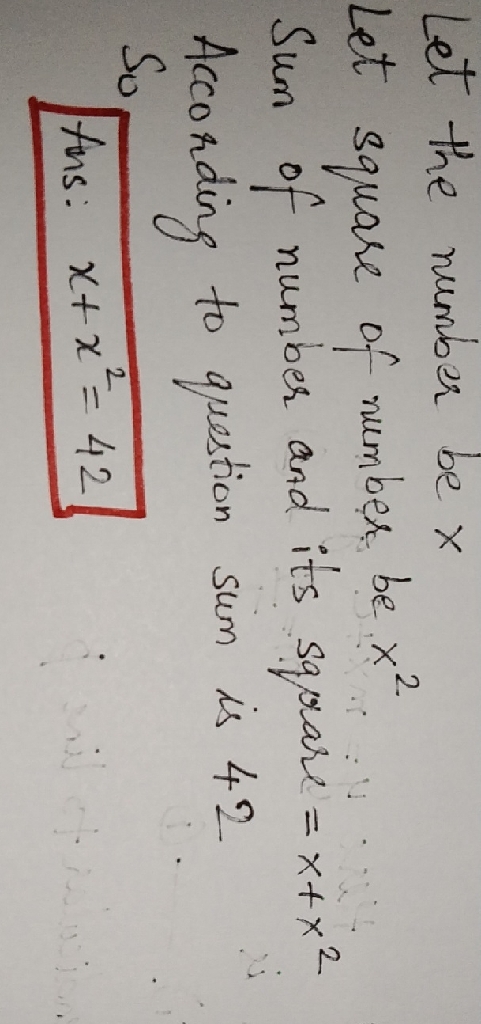 Let the number be x
Let square of number be x²
Sum of number and its square = x+x²
According to question sum is 42
So
Ans: x+x²=42